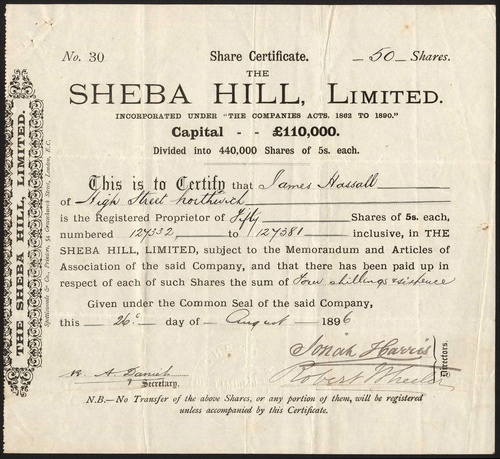 No. 30
Share Certificate.
—50— Shares.
THE
SHEBA HILL, LIMITED.
INCORPORATED UNDER "THE COMPANIES ACTS, 1862 TO 1890."
Capital - - £110,000.
Divided into 440,000 Shares of 5s. each.
This is to Certify that James Hassall
of High Street Northwich
is the Registered Proprietor of Fifty Shares of 5s. each,
numbered 127332 to 127381 inclusive, in THE
SHEBA HILL, LIMITED, subject to the Memorandum and Articles of
Association of the said Company, and that there has been paid up in
respect of each of such Shares the sum of Four shillings & sixpence
Given under the Common Seal of the said Company,
this — 26 — day of — August — 1896
Jonah Harris
Robert Wheeler
Directors.
Secretary.
N.B.—No Transfer of the above Shares, or any portion of them, will be registered
unless accompanied by this Certificate.
THE SHEBA HILL, LIMITED.
Spottiswoode & Co., Printers, 54 Gracechurch Street, London, E.C.